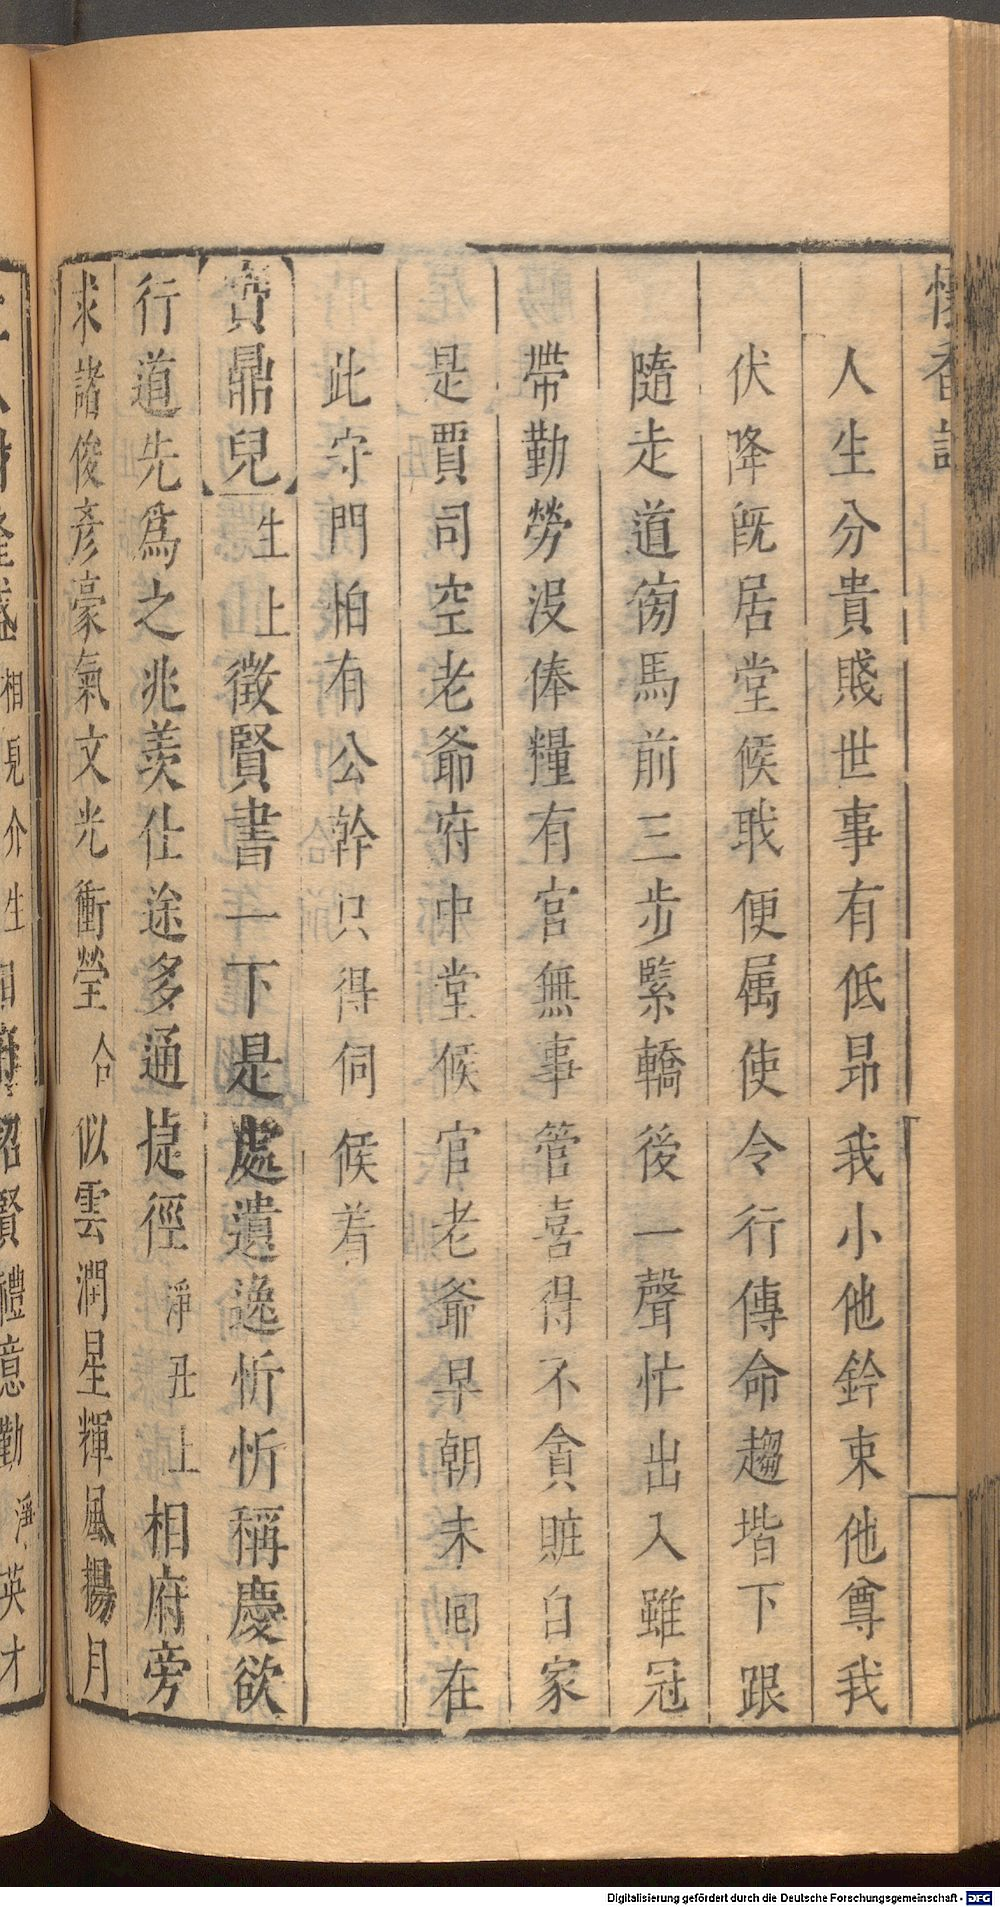 懷香記
人生分貴賤世事有低昂我小他鈐束他尊我
伏降旣居堂候戢便属使令行傳命趨堦下跟
隨走道傍馬前三步緊轎後一聲忙出入雖冠
帶勤勞沒俸糧有官無事管喜得不貪賍白家
是賈司空老爺府中堂候官老爺早朝未回在
此守門怕有公幹只得伺候着
寶鼎兒生上徵賢書一下是處遺逸忻忻稱慶欲
行道先爲之兆羡仕途多通捷徑淨丑上相府旁
求諸俊彥豪氣文光衝瑩合似雲潤星輝風揚月
相見介生
賢禮意勤淨英才
Digitalisierung gefördert durch die Deutsche Forschungsgemeinschaft - DFG